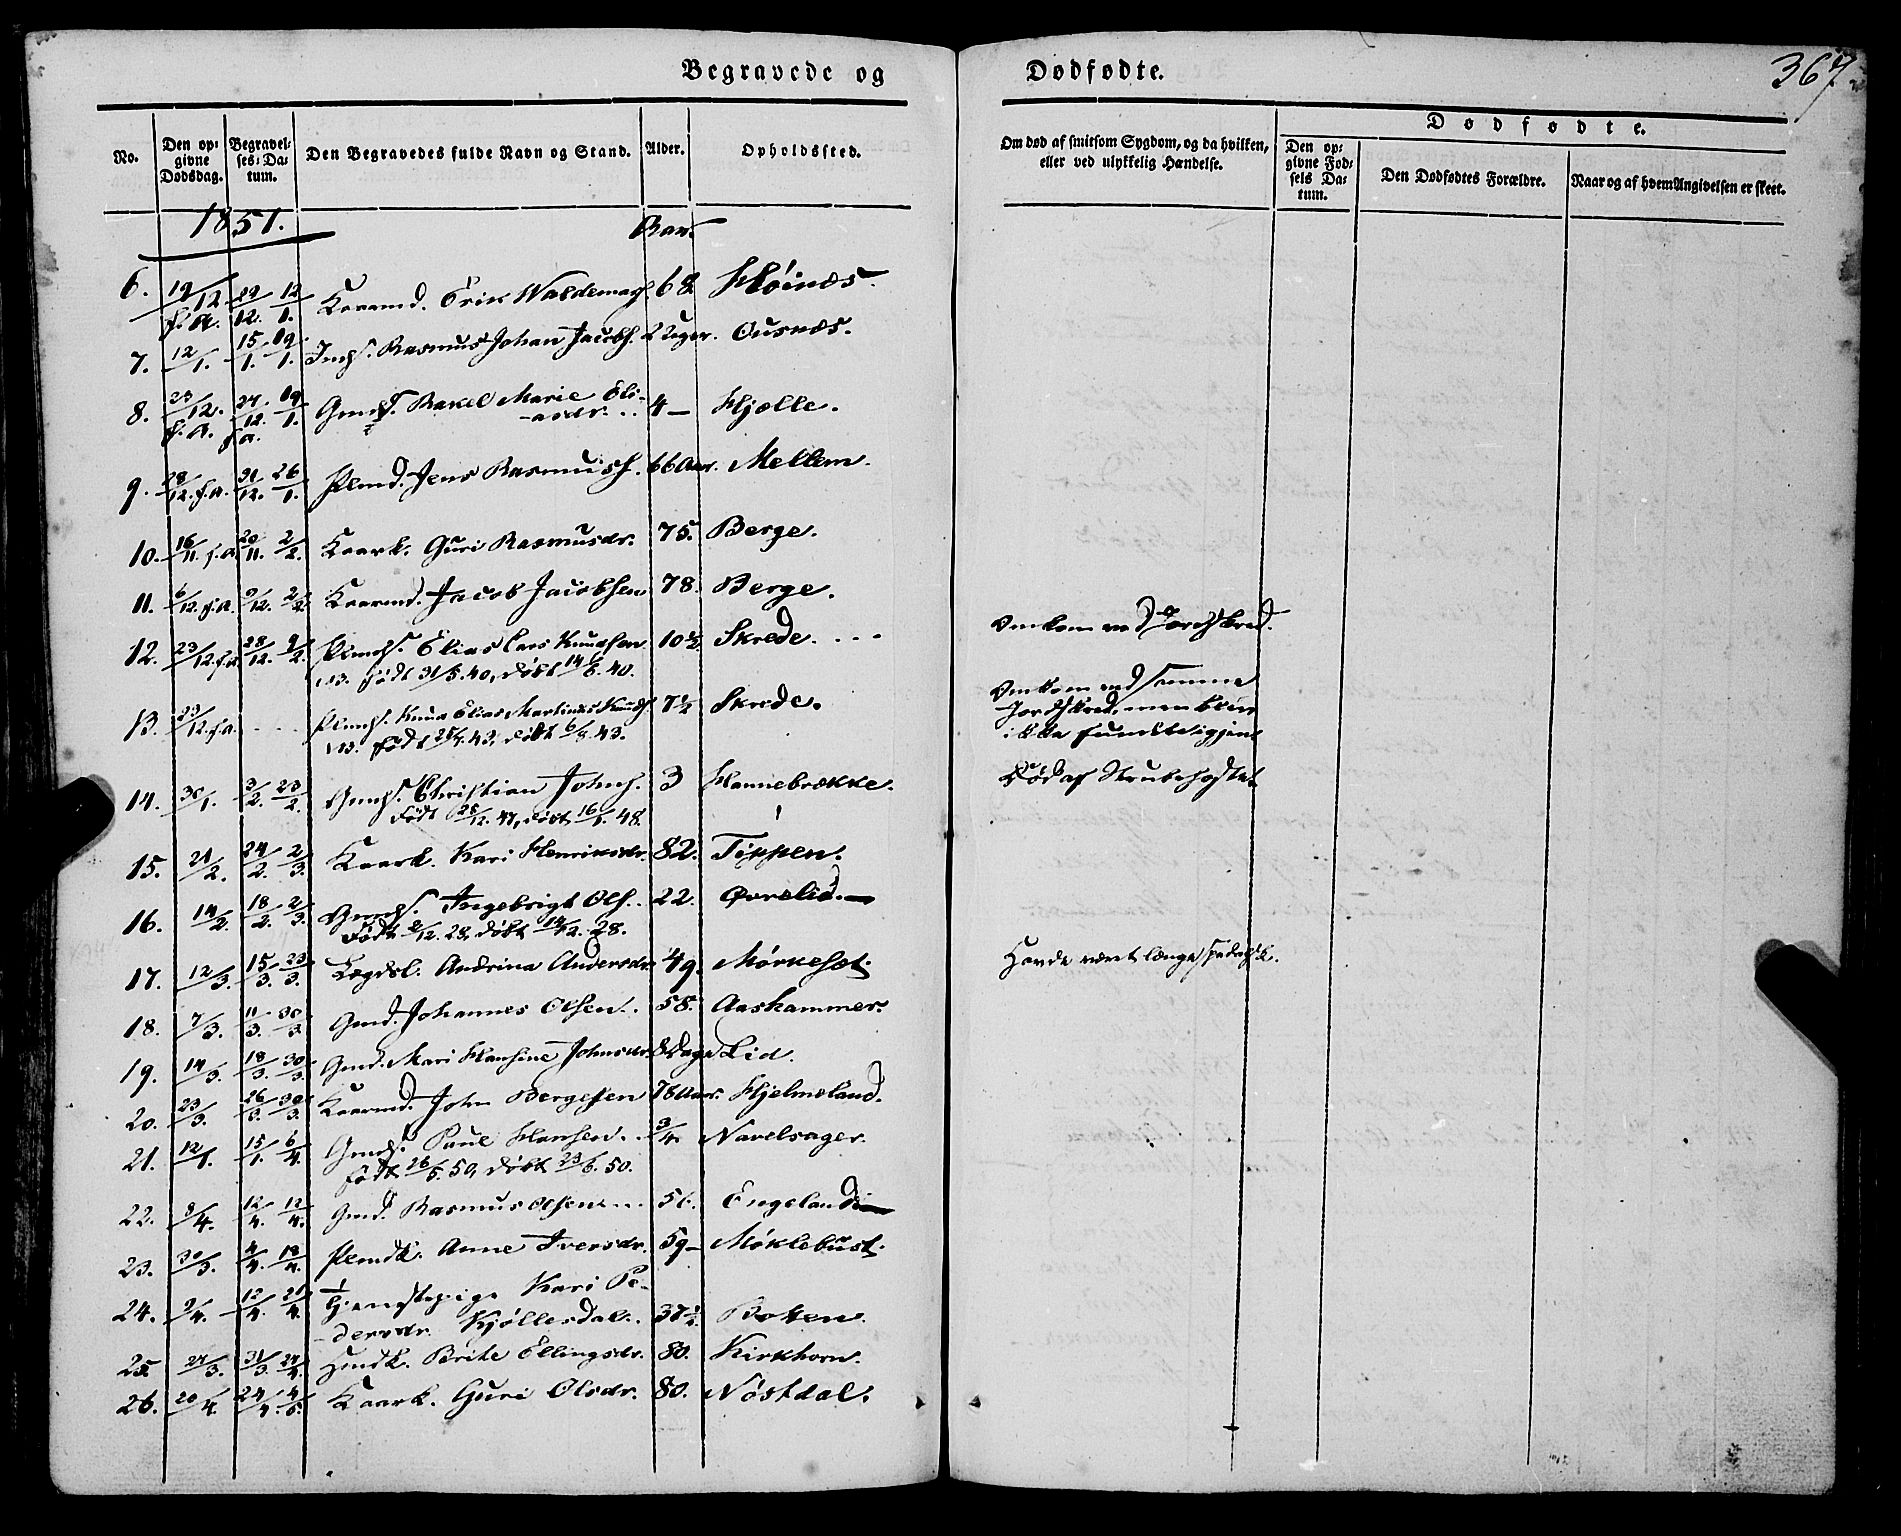 Begravede og Dødfødte.
367.
No. Den opgivne Dødsdag. Begravelses-Datum. Den Begravedes fulde Navn og Stand. Alder. Opholdssted.
Om død af smitsom Sygdom, og da hvilken, eller ved ulykkelig Hændelse.
Dødfødte.
Den opgivne Fødsels Datum. Den Dødfødtes Forældre. Naar og af hvem Angivelsen er skeet.
1851. Aar.
6. 19/12 f.A. 29/12. 12/1. Kaarmd. Erik Waldemars. 68 Høinæs.
7. 12/1. 15/1. 19/1. Rasmus Johan Jacobs. 2 Uger. Ousnæs.
8. 23/12. f.A. 27/12. f.a. 19/1. Gmds. Rakel Marie Eli-
asdr. 4 — Hjelle.
9. 28/12. f.A. 31/12. 26/1. Plmd. Jens Rasmuss. 66 Aar. Mellem.
10. 16/11. f.A. 20/11. 2/2. Kaark. Guri Rasmusdr. 75. Berge.
11. 6/12. f.A. 9/12. 2/2. Kaarmd. Jacob Jacobsen 78. Berge.
12. 23/12. f.A. 28/12. 9/2. Plmds. Elias Lars Knudsen 10½ Skrede. Omkom ved Jordskred.
NB. født 31/5. 40, døbt 14/6. 40.
13. 23/12. f.A. Plmds. Knud Elias Martinus Knuds. 7½ Skrede. Omkom ved samme
Jordskred, men blev
ikke funden igjen
NB. født 27/7. 43, døbt 6/8. 43.
14. 30/1. 3/2. 23/2. Gmds. Christian Johns. 3 Hannebrække. Død af Strubehoste
født 28/12. 47, døbt 16/1. 48.
15. 21/2. 24/2. 2/3. Kaark. Kari Henriksdr. 82. Tippen.
16. 14/2. 18/2. 2/3. Gmds. Ingebrigt Ols. 22. Øvrelid.
Født 2/12. 28, døbt 14/12. 28.
17. 12/3. 15/3. 23/3. Lægdsl. Andrina Andersdr. 49. Mørkeset. Havde været længe spedalsk.
18. 7/3. 11/3. 30/3. Gmd. Johannes Olsen. 58. Aaskammer.
19. 14/3. 18/3. 30/3. Gmd. Mari Hansine Johnsdr. 8 Dage Lid.
20. 23/3. 26/3. 30/3. Kaarmd. John Bergesen 76 Aar. Hjelmeland.
21. 12/1. 15/1. 6/4. Gmds. Paul Hansen. 3/4. Navelsager.
født 26/5. 50, døbt 23/6. 50.
22. 8/4. 12/4. 12/4. Gmd. Rasmus Olsen 51. Engeland
23. 30/3. 4/4. 18/4. Plmdk. Anne Iversdr. 59 — Møklebust.
24. 9/4. 12/4. 21/4. Tjenestepige Kari Pe-
dersdr. Kjøllesdal. 37½ Boten.
25. 27/3. 31/3. 27/4. Hmdk. Brite Ellingsdr. 80. Kirkhorn.
26. 20/4. 24/4. 4/5. Kaark. Guri Olsdr. 80. Nøstdal.